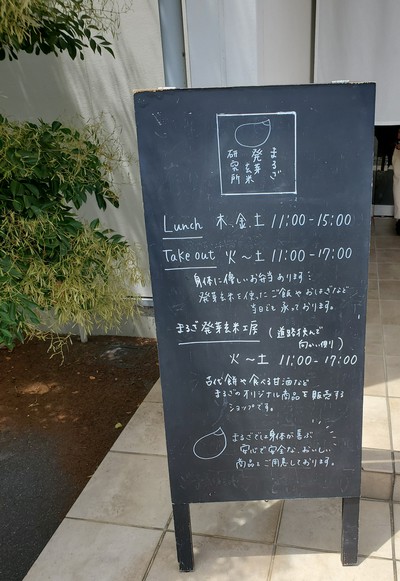 まるご
発芽玄米
研究所
Lunch 木.金.土 11:00-15:00
Take out 火〜土 11:00-17:00
身体に優しいお弁当あります:
発芽玄米を使ったご飯やおはぎなど
当日でも承っております。
まるご発芽玄米工房 (道路挟んで
向かい側り)
火〜土 11:00-17:00
古代餅や食べる甘酒など
まるごのオリジナル商品を販売する
ショップです。
まるごでは身体が喜ぶ
安心で安全な、おいしい
商品をご用意しております。